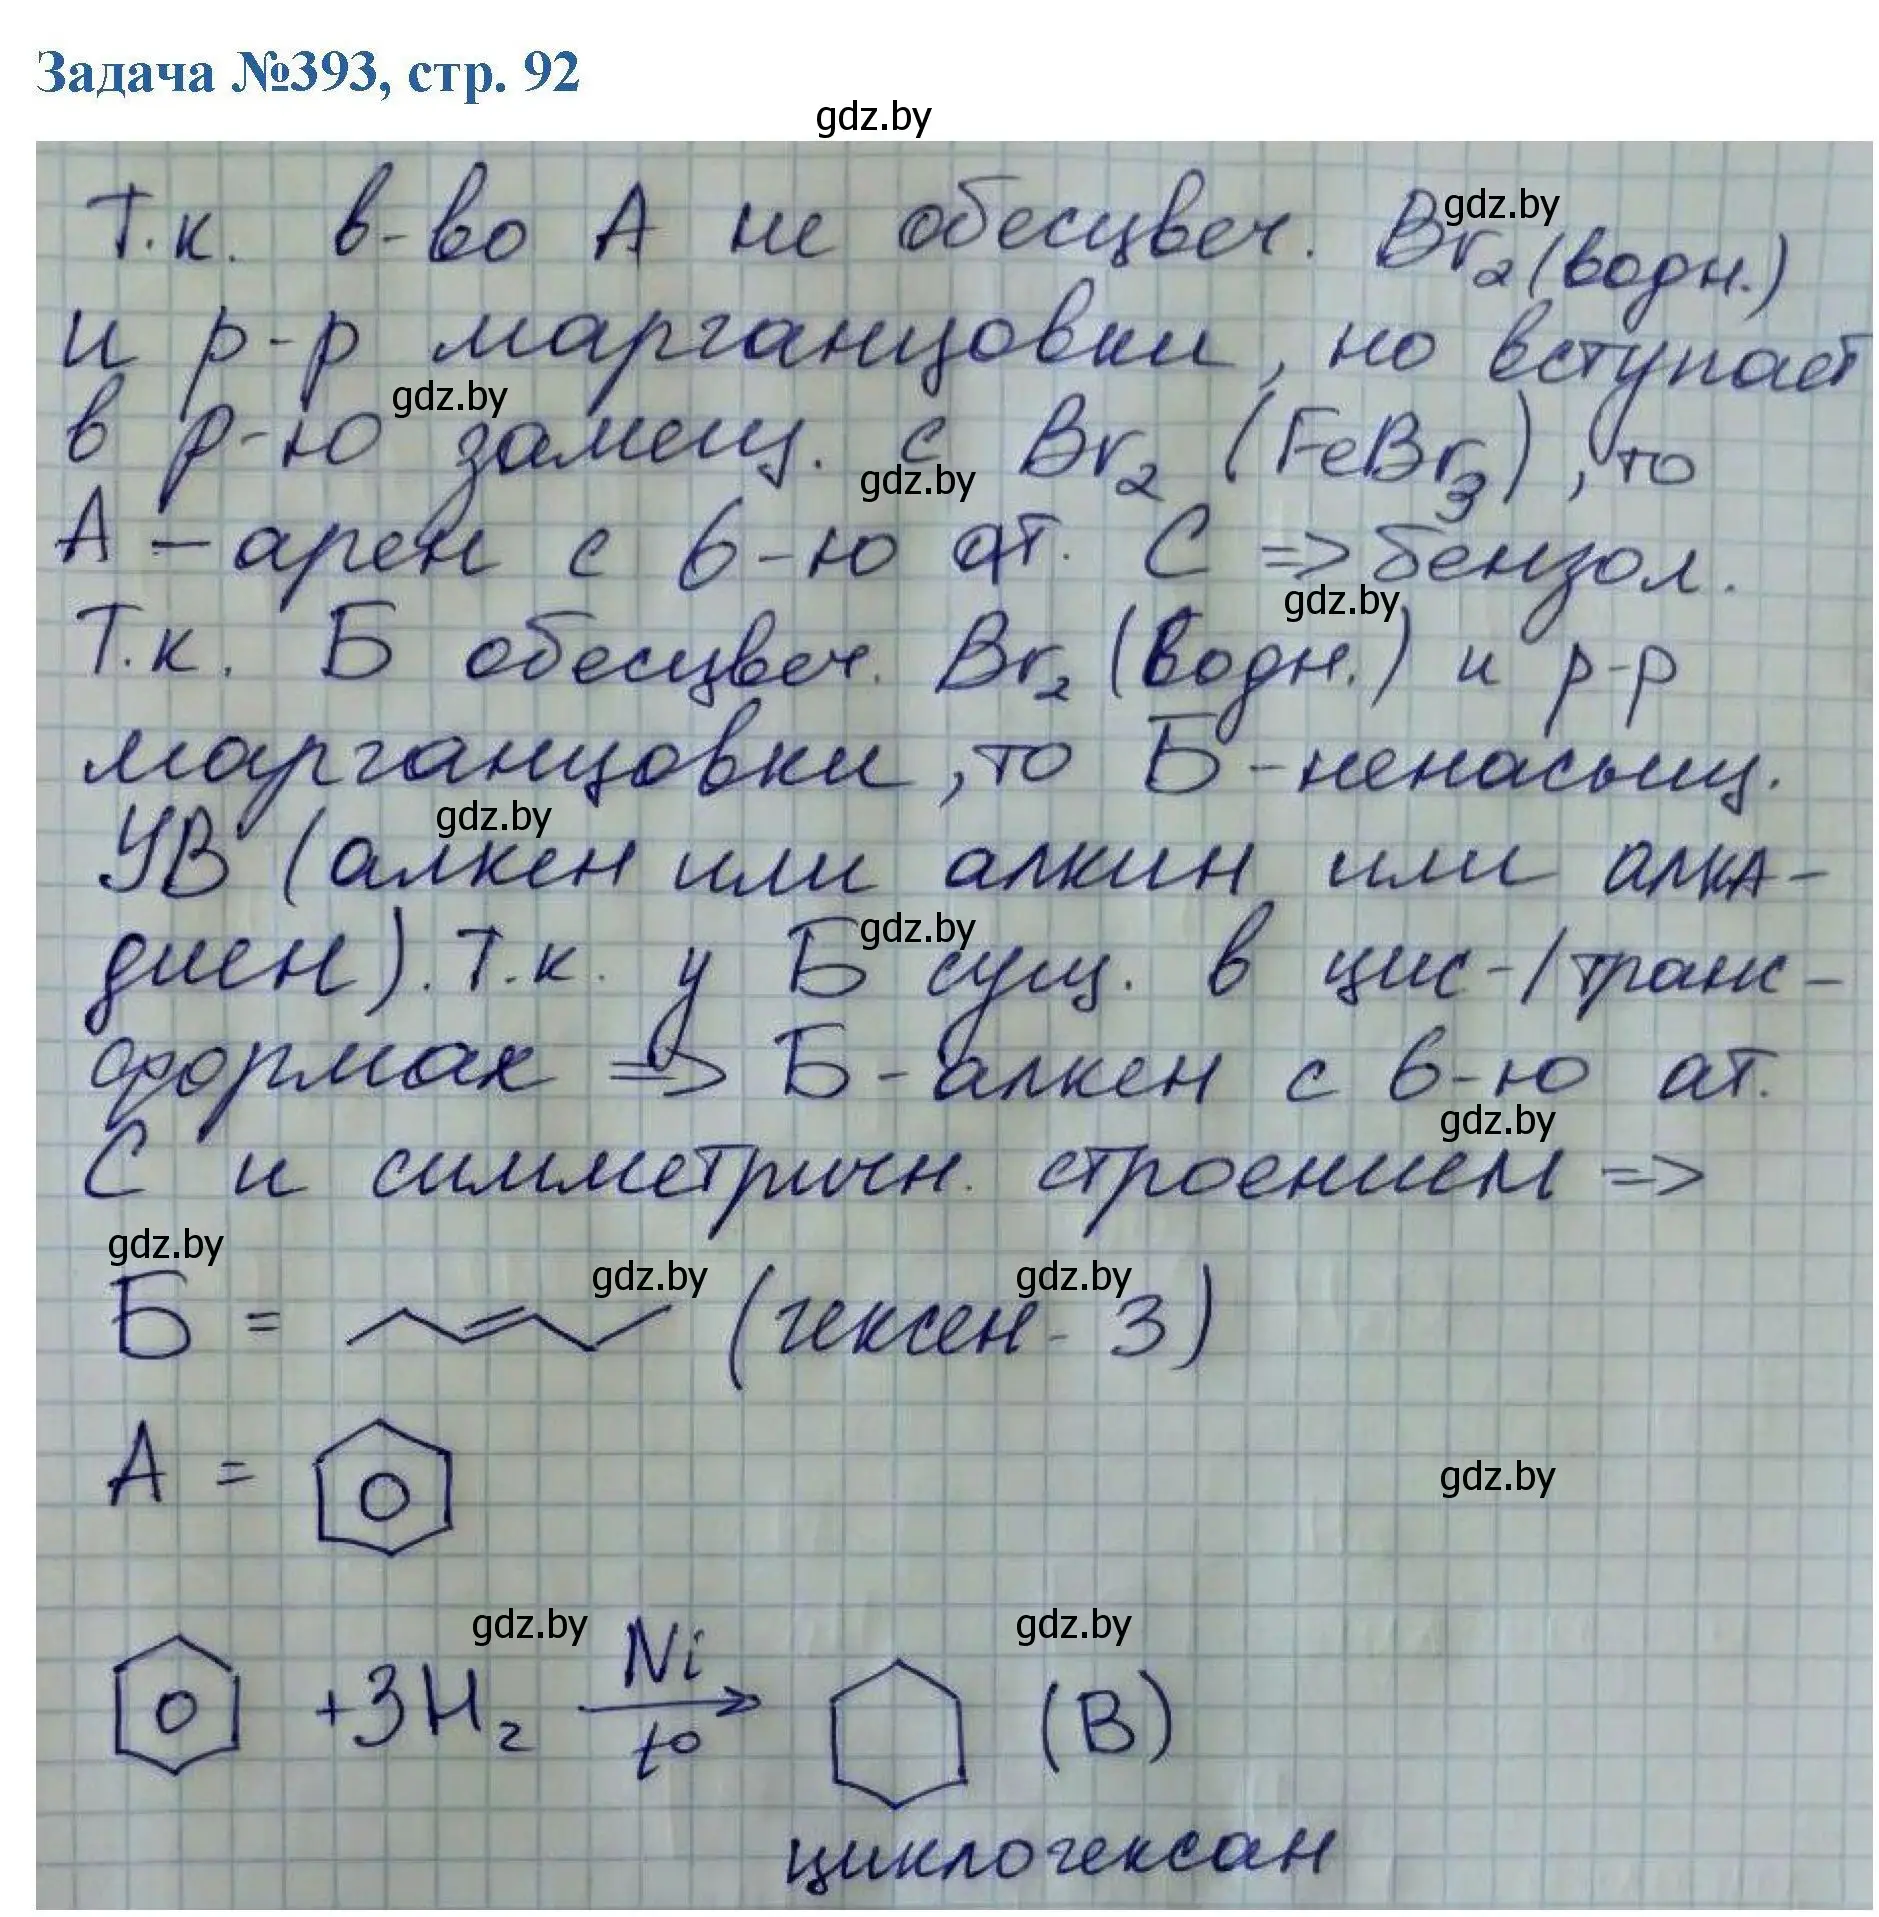 Задача №393, стр. 92
gdz.by
Т.к. в-во А не обесцвеч. Br₂(водн.)
gdz.by
и р-р марганцовки, но вступает
gdz.by
в р-ю замещ. с Br₂ (FeBr₃), то
gdz.by
А - арен с 6-ю ат. С => бензол.
gdz.by
Т.к. Б обесцвеч. Br₂ (водн.) и р-р
марганцовки, то Б - ненасыщ.
gdz.by
УВ (алкен или алкин или алка-
gdz.by
диен). Т.к. у Б сущ. в цис-/транс-
формах => Б - алкен с 6-ю ат.
gdz.by
С и симметричн. строением =>
gdz.by
gdz.by gdz.by
Б = (гексен-3)
А =
gdz.by
gdz.by gdz.by
+3H₂ Ni t° (В)
циклогексан